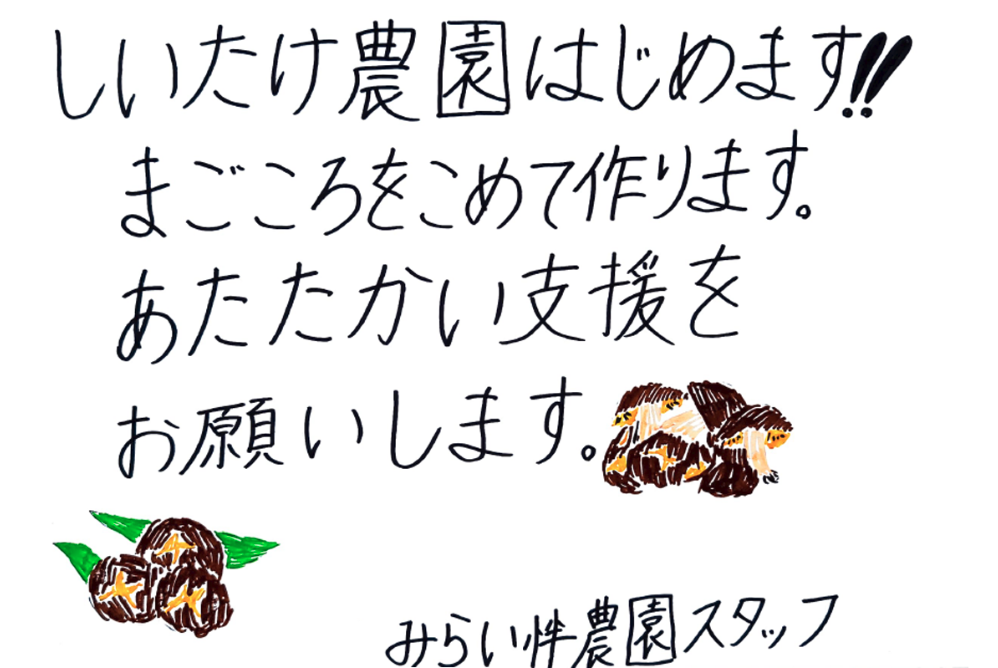 しいたけ農園はじめます!!
まごころをこめて作ります。
あたたかい支援を
お願いします。
みらい絆農園スタッフ